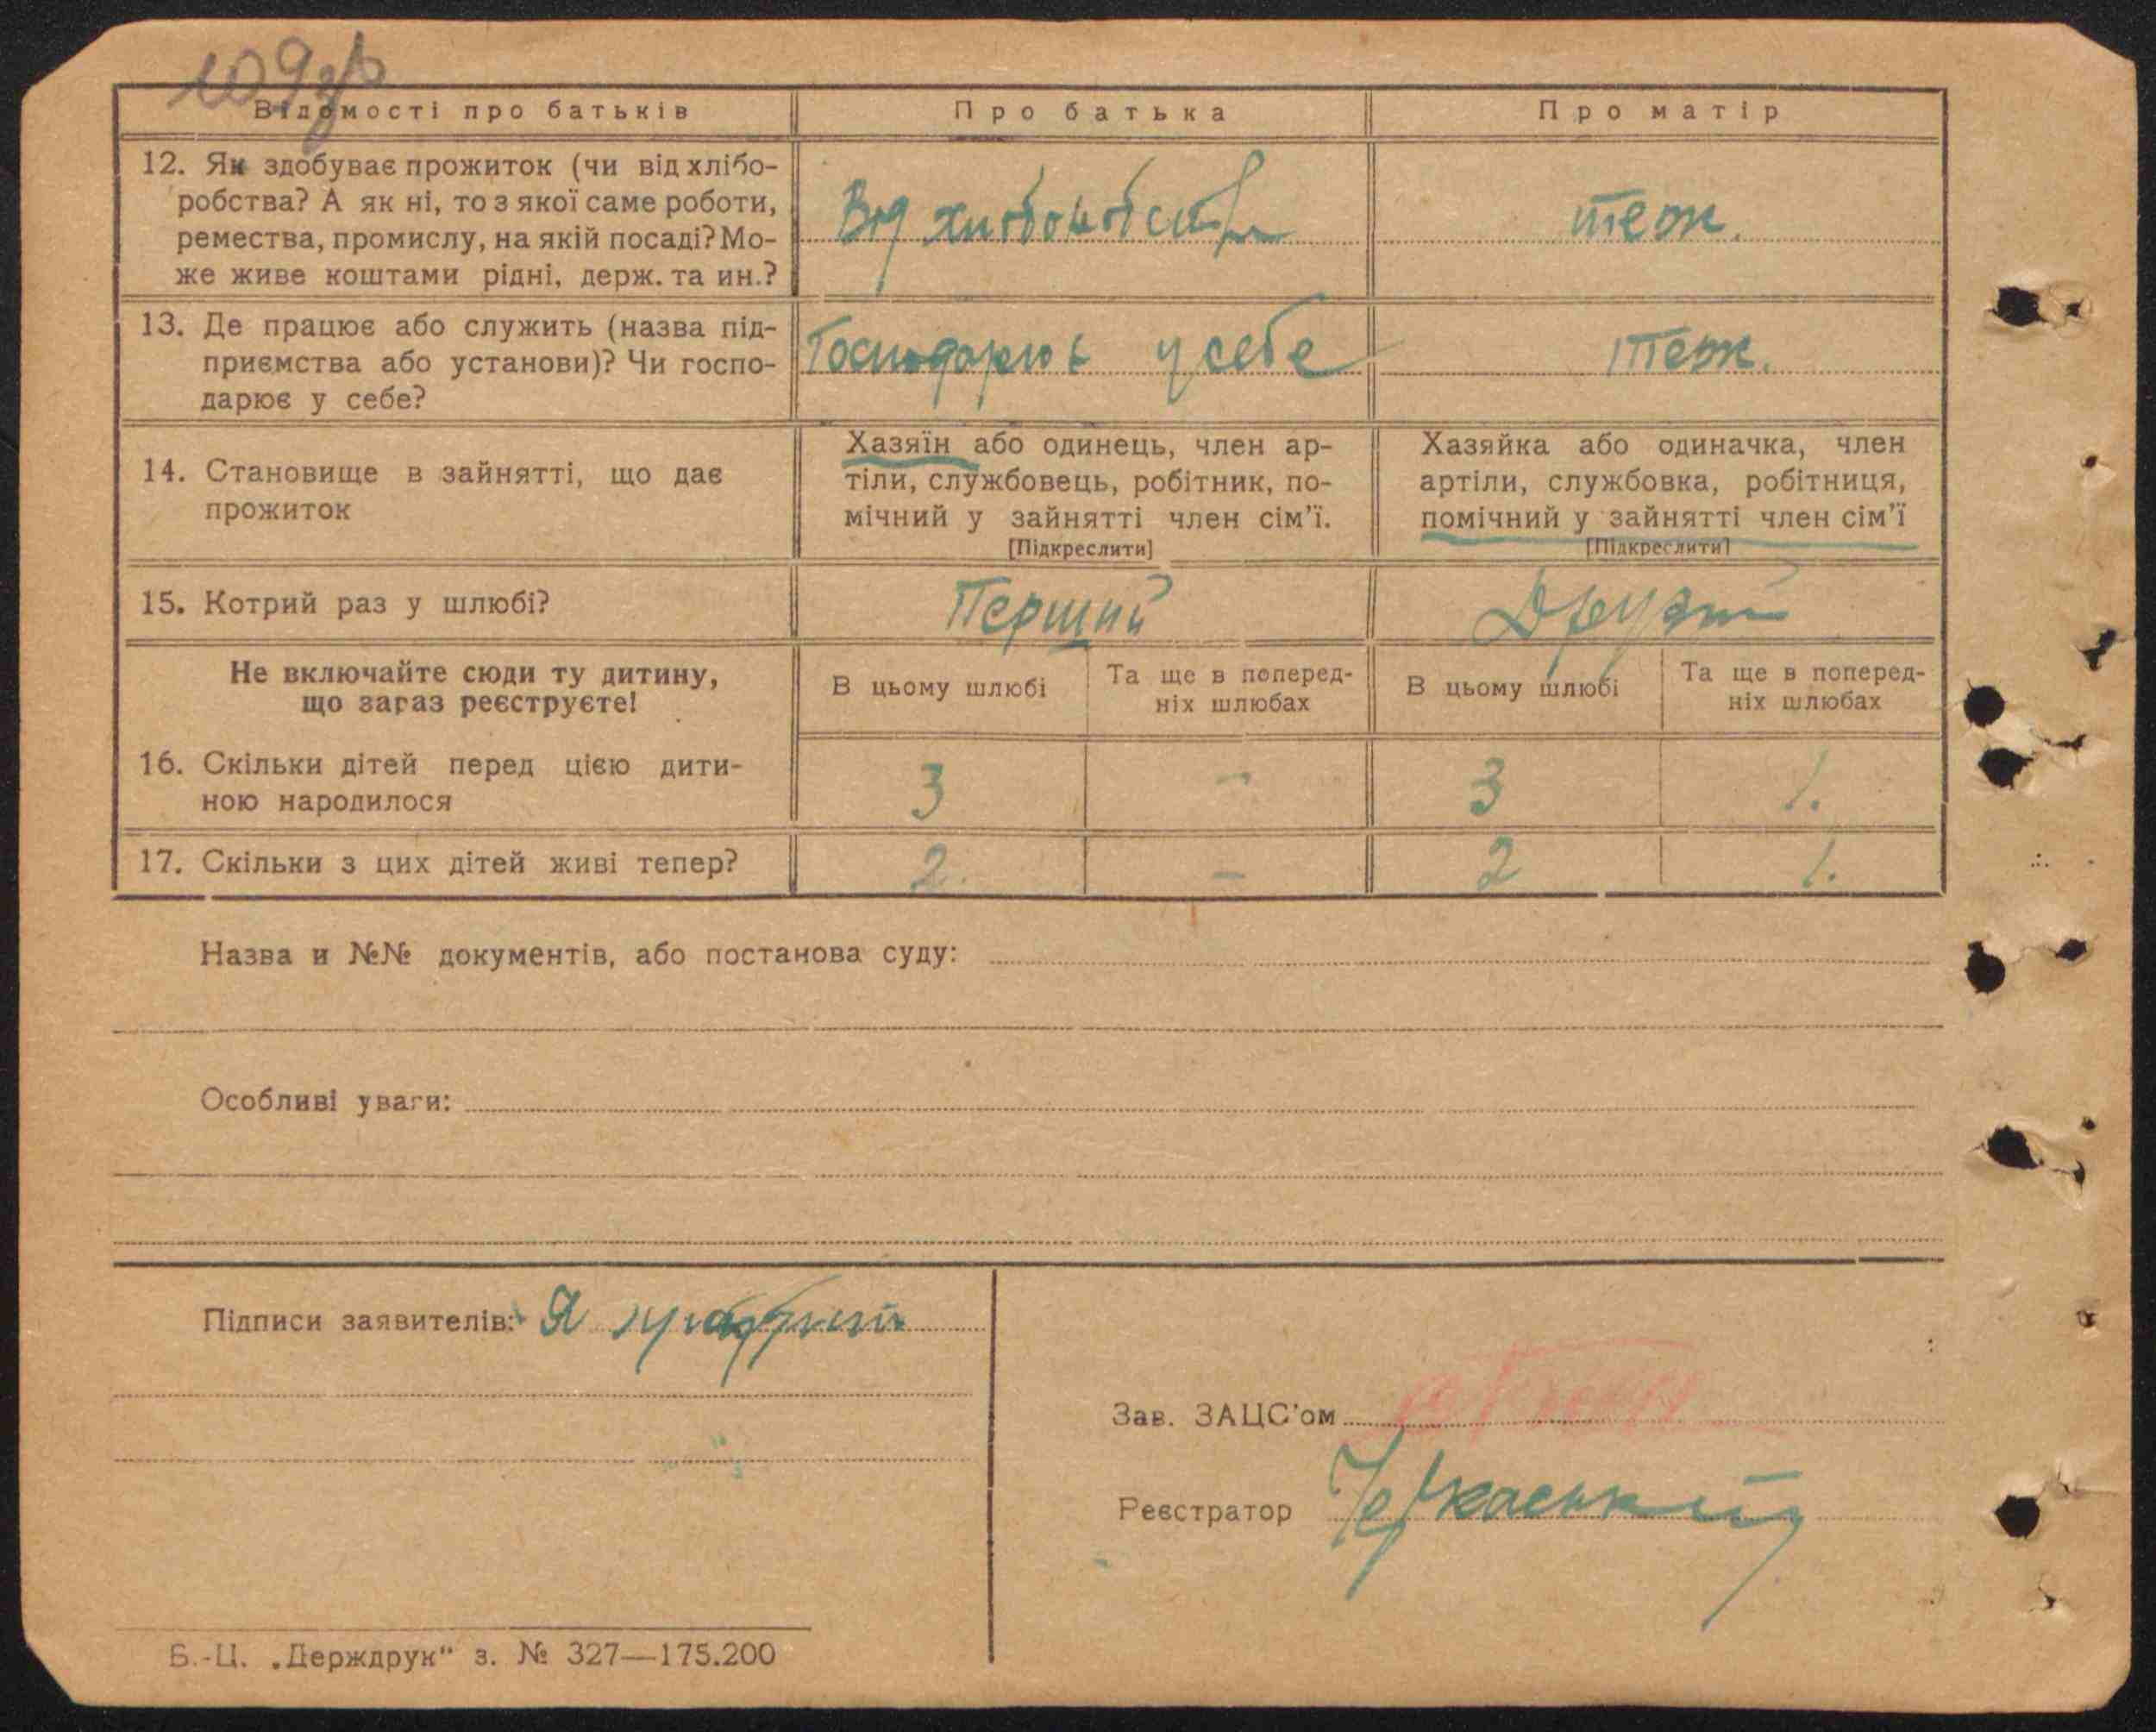 109зв
Відомості про батьків
Про батька
Про матір
12. Як здобуває прожиток (чи від хлібо-
робства? А як ні, то з якої саме роботи,
ремества, промислу, на якій посаді? Мо-
же живе коштами рідні, держ. та ин.?
Від
теж.
13. Де працює або служить (назва під-
приємства або установи)? Чи госпо-
дарює у себе?
Господарює у себе
теж.
14. Становище в зайнятті, що дає
прожиток
Хазяїн або одинець, член ар-
тіли, службовець, робітник, по-
мічний у зайнятті член сім'ї.
[Підкреслити]
Хазяйка або одиначка, член
артіли, службовка, робітниця,
помічний у зайнятті член сім'ї
[Підкреслити]
15. Котрий раз у шлюбі?
Перший
Другий
Не включайте сюди ту дитину,
що зараз реєструєте!
В цьому шлюбі
Та ще в поперед-
ніх шлюбах
В цьому шлюбі
Та ще в поперед-
ніх шлюбах
16. Скільки дітей перед цією дити-
ною народилося
3 - 3 1.
17. Скільки з цих дітей живі тепер?
2. - 2 1.
Назва и №№ документів, або постанова суду:
Особливі уваги:
Підписи заявителів: Я
Зав. ЗАЦС'ом
Реєстратор Черкаський
Б.-Ц. „Держдрук" з. № 327—175.200